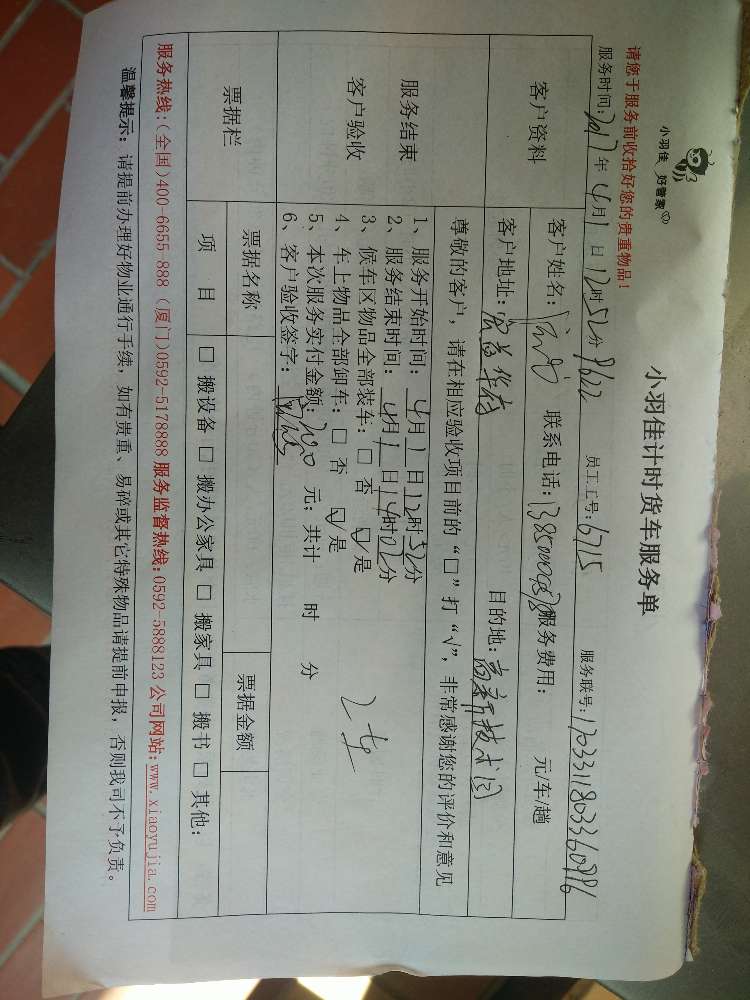 小羽佳 好管家
小羽佳计时货车服务单
请您于服务前收拾好您的贵重物品！
服务时间：2017年4月1日12时52分 员工工号：6715 服务联号：
客户资料
客户姓名： 联系电话： 服务费用： 元/车/趟
客户地址： 目的地：高新技术园
服务结束
客户验收
尊敬的客户，请在相应验收项目前的“□”打“√”，非常感谢您的评价和意见
1、服务开始时间：4月1日12时52分
2、服务结束时间：4月1日14时02分
3、候车区物品全部装车：□ 否 ☑ 是
4、车上物品全部卸车：□ 否 ☑ 是
5、本次服务实付金额： 元；共计 时 分
6、客户验收签字：
2车
票据栏
票据名称 票据金额
项 目 □ 搬设备 □ 搬办公家具 □ 搬家具 □ 搬书 □ 其他：
服务热线：(全国)400-6655-888 (厦门)0592-5178888 服务监督热线：0592-5888123 公司网站：www.xiaoyujia.com
温馨提示：请提前办理好物业通行手续，如有贵重、易碎或其它特殊物品请提前申报，否则我司不予负责。